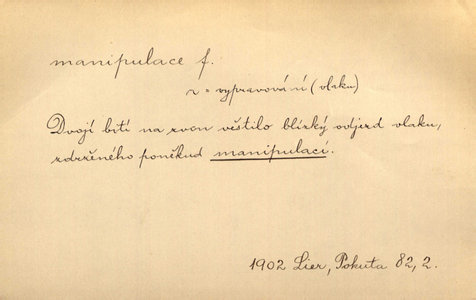 manipulace f.
v = vypravování (vlaku)
Dvojí bití na zvon věstilo blízký odjezd vlaku,
zdrženého poněkud manipulací.
1902 Lier, Pokuta 82, 2.